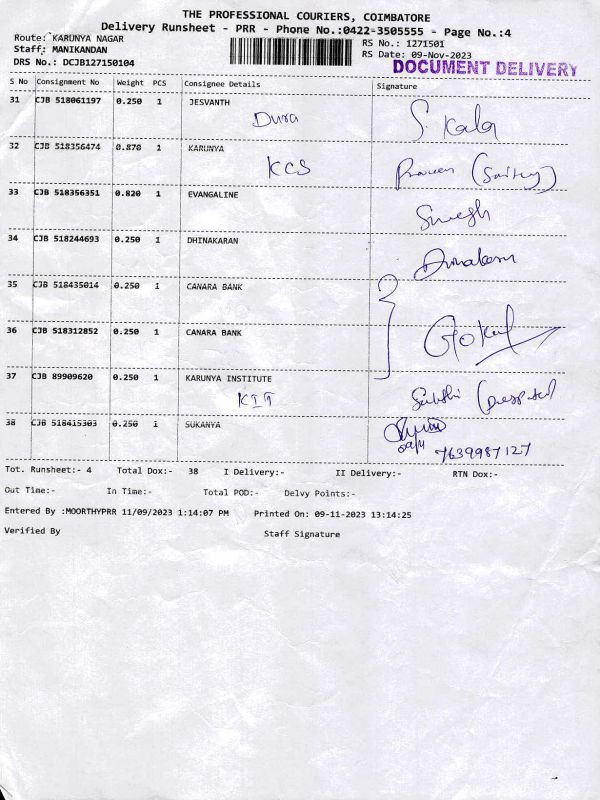 THE PROFESSIONAL COURIERS, COIMBATORE
Delivery Runsheet - PRR - Phone No.:0422-3505555 - Page No.:4
Route: KARUNYA NAGAR
RS No.: 1271501
Staff: MANIKANDAN
RS Date: 09-Nov-2023
DRS No.: DCJB127150104
DOCUMENT DELIVERY
S No Consignment No Weight PCS Consignee Details Signature
31 CJB 518061197 0.250 1 JESVANTH
Dura S. Kala
32 CJB 518356474 0.870 1 KARUNYA
KCS Praveen
33 CJB 518356351 0.820 1 EVANGALINE
34 CJB 518244693 0.250 1 DHINAKARAN
35 CJB 518435014 0.250 1 CANARA BANK
36 CJB 518312852 0.250 1 CANARA BANK
Gokul
37 CJB 89909620 0.250 1 KARUNYA INSTITUTE
KIT
38 CJB 518415303 0.250 1 SUKANYA
7639987127
Tot. Runsheet:- 4 Total Dox:- 38 I Delivery:- II Delivery:- RTN Dox:-
Out Time:- In Time:- Total POD:- Delvy Points:-
Entered By :MOORTHYPRR 11/09/2023 1:14:07 PM Printed On: 09-11-2023 13:14:25
Verified By Staff Signature